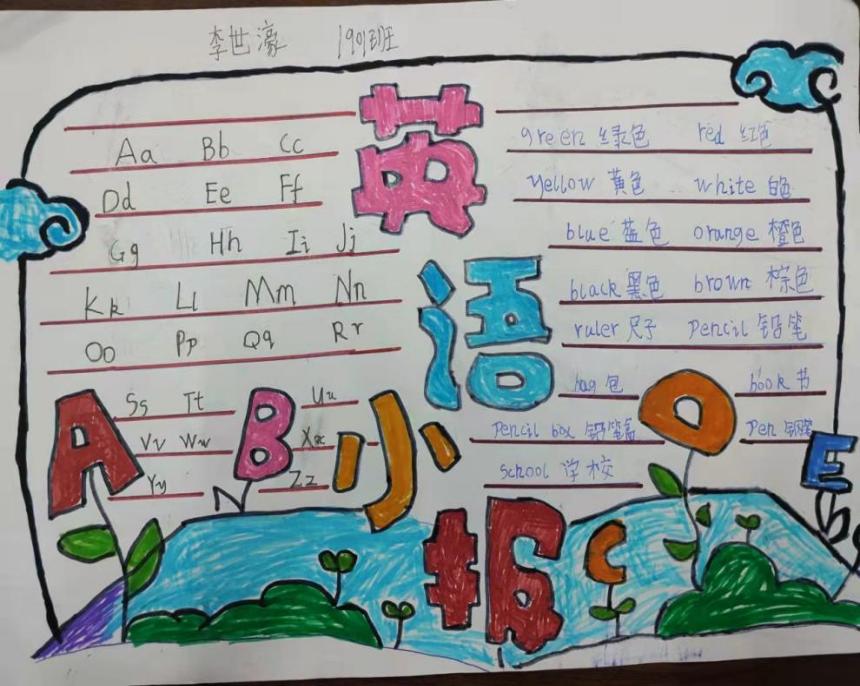 李世濠 1901班
英语小报
Aa Bb Cc
Dd Ee Ff
Gg Hh Ii Jj
Kk Ll Mm Nn
Oo Pp Qq Rr
Ss Tt Uu
Vv Ww Xx
Yy Zz
green 绿色 red 红色
yellow 黄色 white 白色
blue 蓝色 orange 橙色
black 黑色 brown 棕色
ruler 尺子 pencil 铅笔
bag 包 book 书
pencil box 铅笔盒 pen 钢笔
school 学校
A B C D E